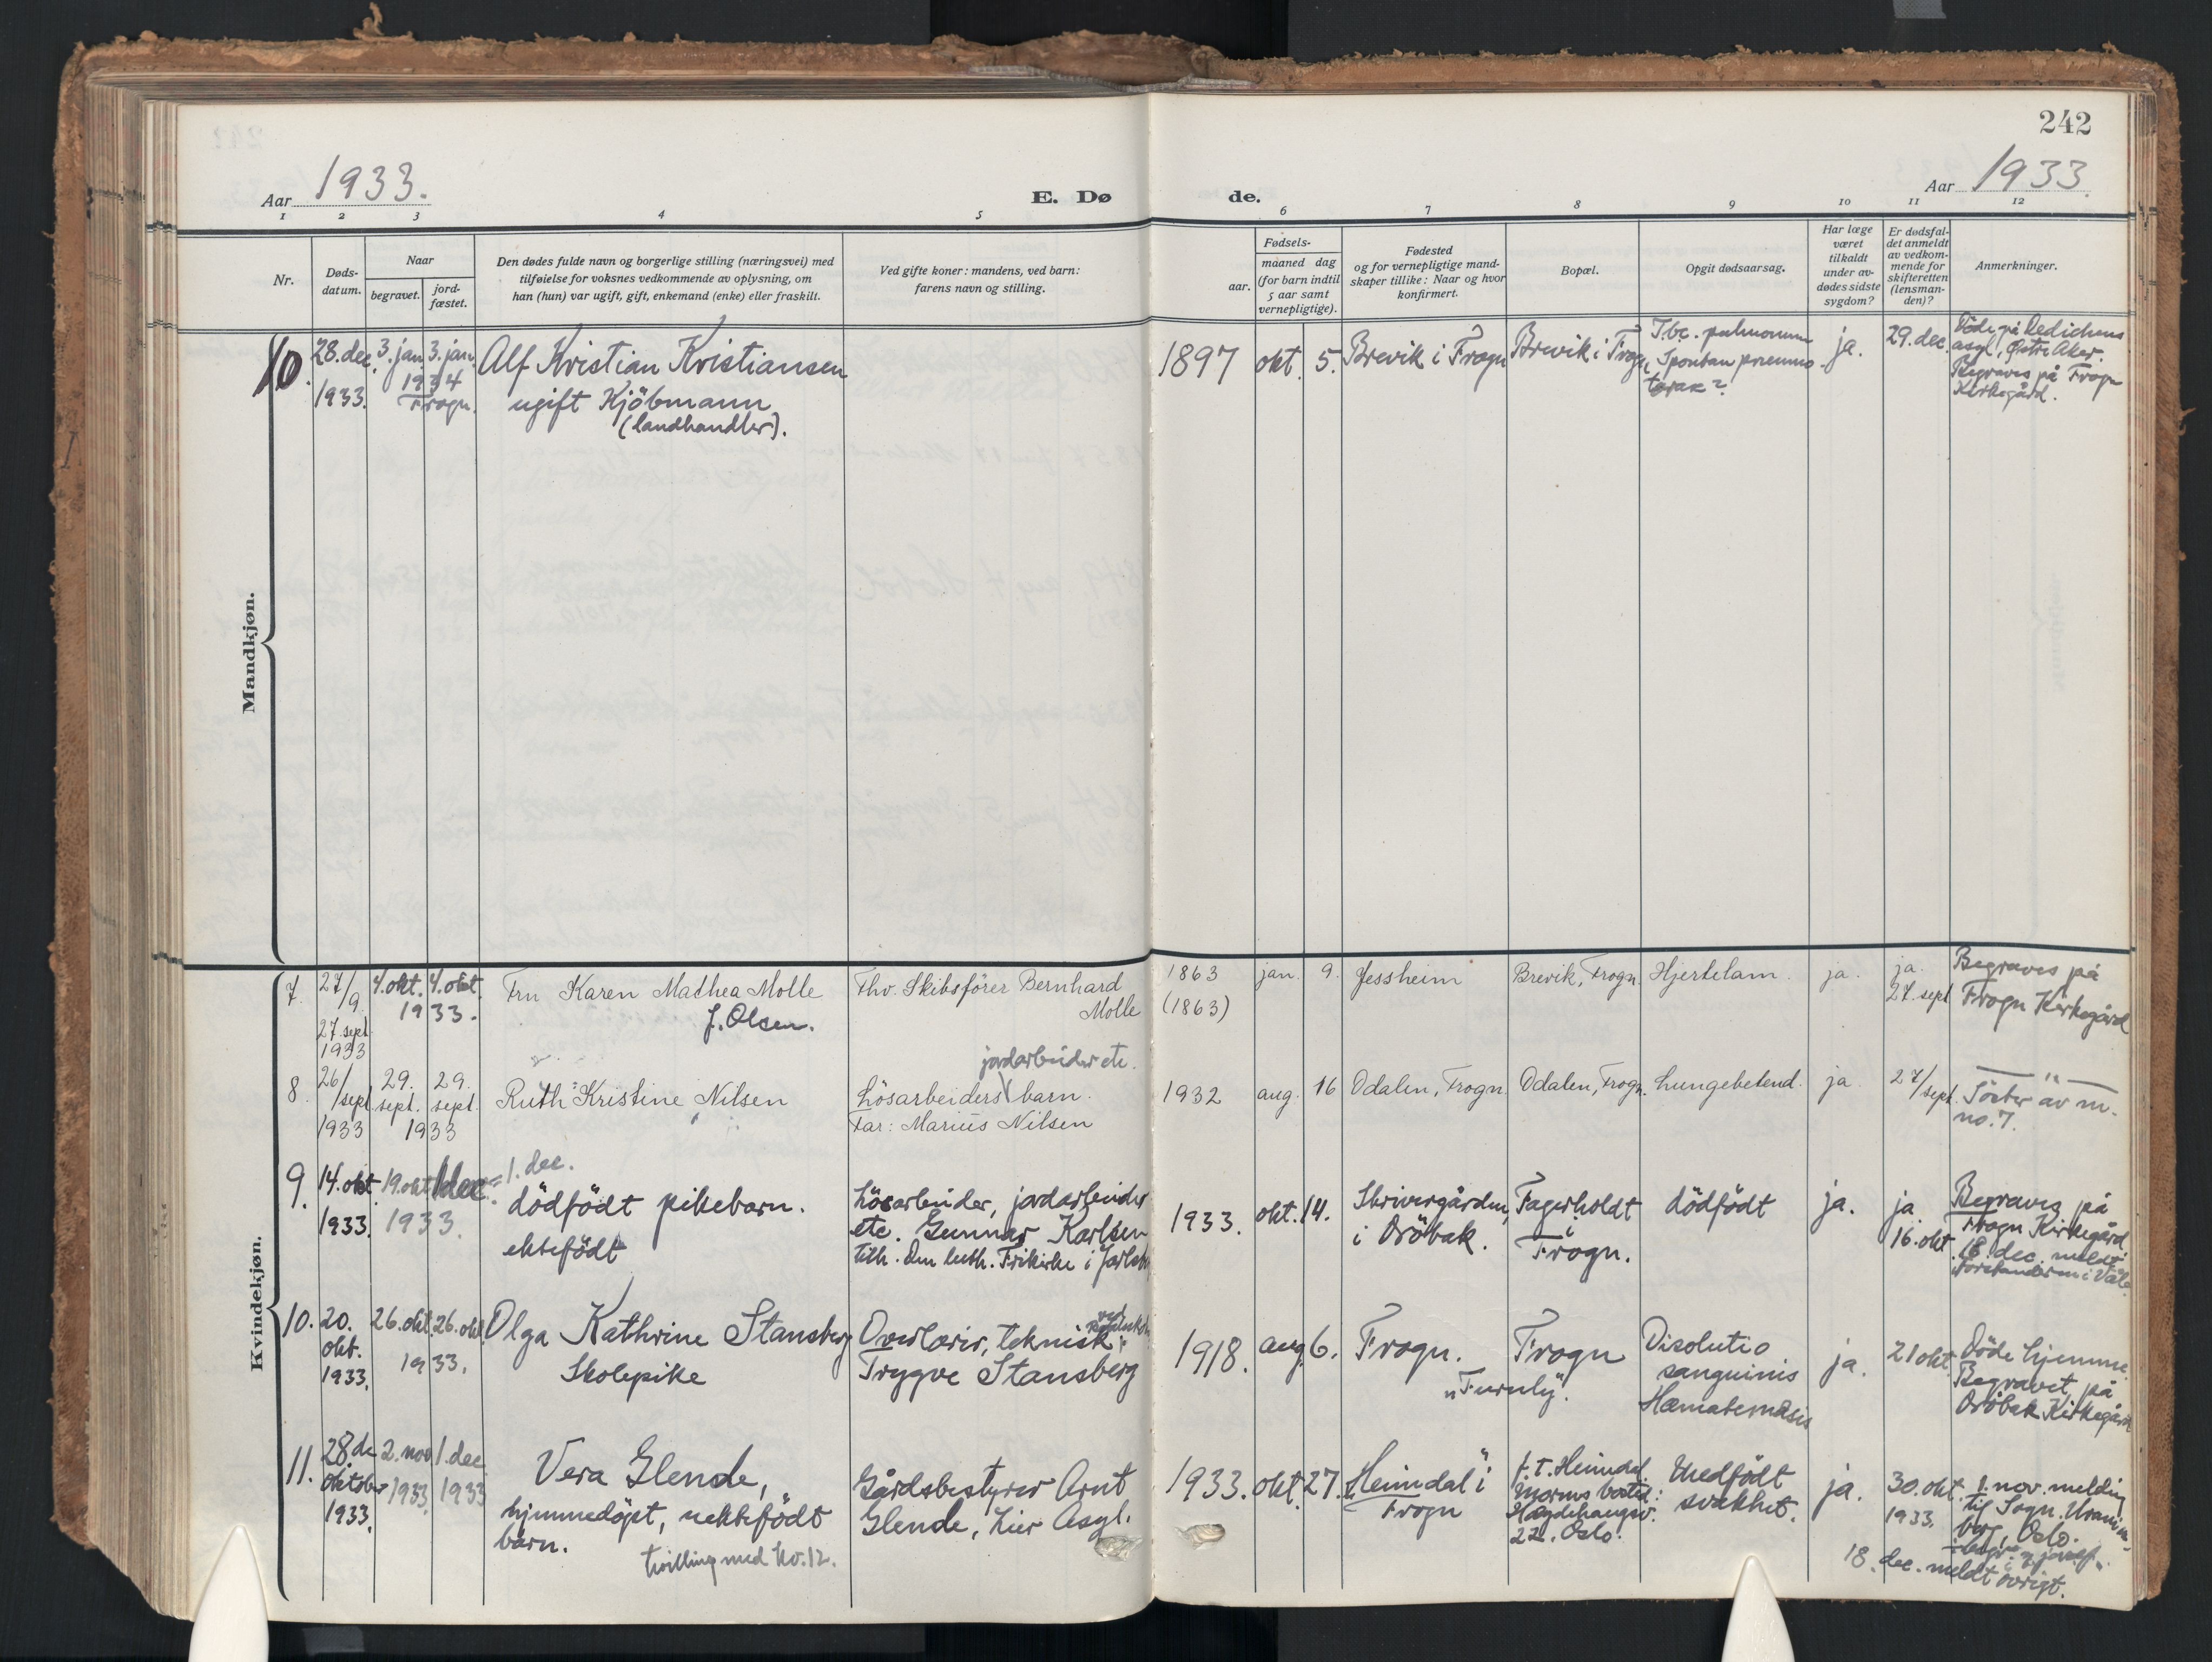 242
Aar 1933.
E. Dø
de.
Aar 1933.
1 2 3 4 5 6 7 8 9 10 11 12
Nr.
Døds-
datum.
Naar
begravet.
jord-
fæstet.
Den dødes fulde navn og borgerlige stilling (næringsvei) med
tilføielse for voksnes vedkommende av oplysning, om
han (hun) var ugift, gift, enkemand (enke) eller fraskilt.
Ved gifte koner: mandens, ved barn:
farens navn og stilling.
Fødsels-
aar.
maaned dag
(for barn indtil
5 aar samt
vernepligtige).
Fødested
og for vernepligtige mand-
skaper tillike: Naar og hvor
konfirmert.
Bopæl.
Opgit dødsaarsag.
Har læge
været
tilkaldt
under av-
dødes sidste
sygdom?
Er dødsfal-
det anmeldt
av vedkom-
mende for
skifteretten
(lensman-
den)?
Anmerkninger.
Mandkjøn.
10.
28. dec.
1933.
3. jan. 3. jan.
1934
Frogn.
Alf Kristian Kristiansen
ugift Kjöbmann
(landhandler).
1897
okt.
5.
Brevik i Frogn
Brevik i Frogn
Tbc. pulmonum
Spontan pneumo-
torax?
ja.
29. dec.
Döde på Dedichens
asyl, Østre Aker.
Begraves på Frogn
Kirkegård.
Kvindekjøn.
7.
27/9
27. sept
1933
4. okt. 4. okt.
1933.
Fru Karen Mathea Molle
f. Olsen.
Fhv. Skibsfører Bernhard
Molle
1863
(1863)
jan.
9.
Jessheim
Brevik, Frogn.
Hjertelam.
ja.
ja.
27. sept
Begraves på
Frogn Kirkegård
8.
26/sept.
1933
29. sept.
29. sept.
1933
Ruth Kristine Nilsen
jordarbeider etc.
Lösarbeiders barn.
Far: Marius Nilsen
1932
aug.
16
Odalen, Frogn.
Odalen, Frogn.
Lungebetend.
ja
27/sept.
— " —
no. 7.
9.
14. okt.
1933.
19. okt
1933.
1. dec.
dödfödt pikebarn.
ektefödt
Lösarbeider, jordarbeider
etc. Gunnar Karlsen
tilh. Den luth. Frikirke i
1933.
okt.
14.
Skrivergården,
i Dröbak.
Fagerholdt
i
Frogn.
dödfödt
ja.
ja.
16. okt.
Begraves på
Frogn Kirkegård
18. dec. meldt
10.
20.
okt.
1933.
26. okt. 26. okt.
1933.
Olga Kathrine Stansberg
Skolepike
Overlærer, teknisk
ved
Trygve Stansberg
1918.
aug.
6.
Frogn.
Frogn
"Furuly".
Disolutio
sanguinis
Hæmatemesis
ja.
21 okt.
Döde hjemme.
Begravet på
Dröbak Kirkegård
11.
28. de
oktober
1933.
2. nov
1933
1. dec.
1933
Vera Glende,
hjemmedöpt, uektefödt
barn.
tvilling med No. 12.
Gårdsbestyrer Arnt
Glende, Lier Asyl.
1933.
okt.
27.
"Heimdal" i
Frogn
f.t. Heimdal.
morens bosted:
22. Oslo.
Medfödt
svakhet.
ja.
30. okt.
1933.
1. nov. melding
til Sogn.
berg, Oslo.
18. dec. meldt övrigt.